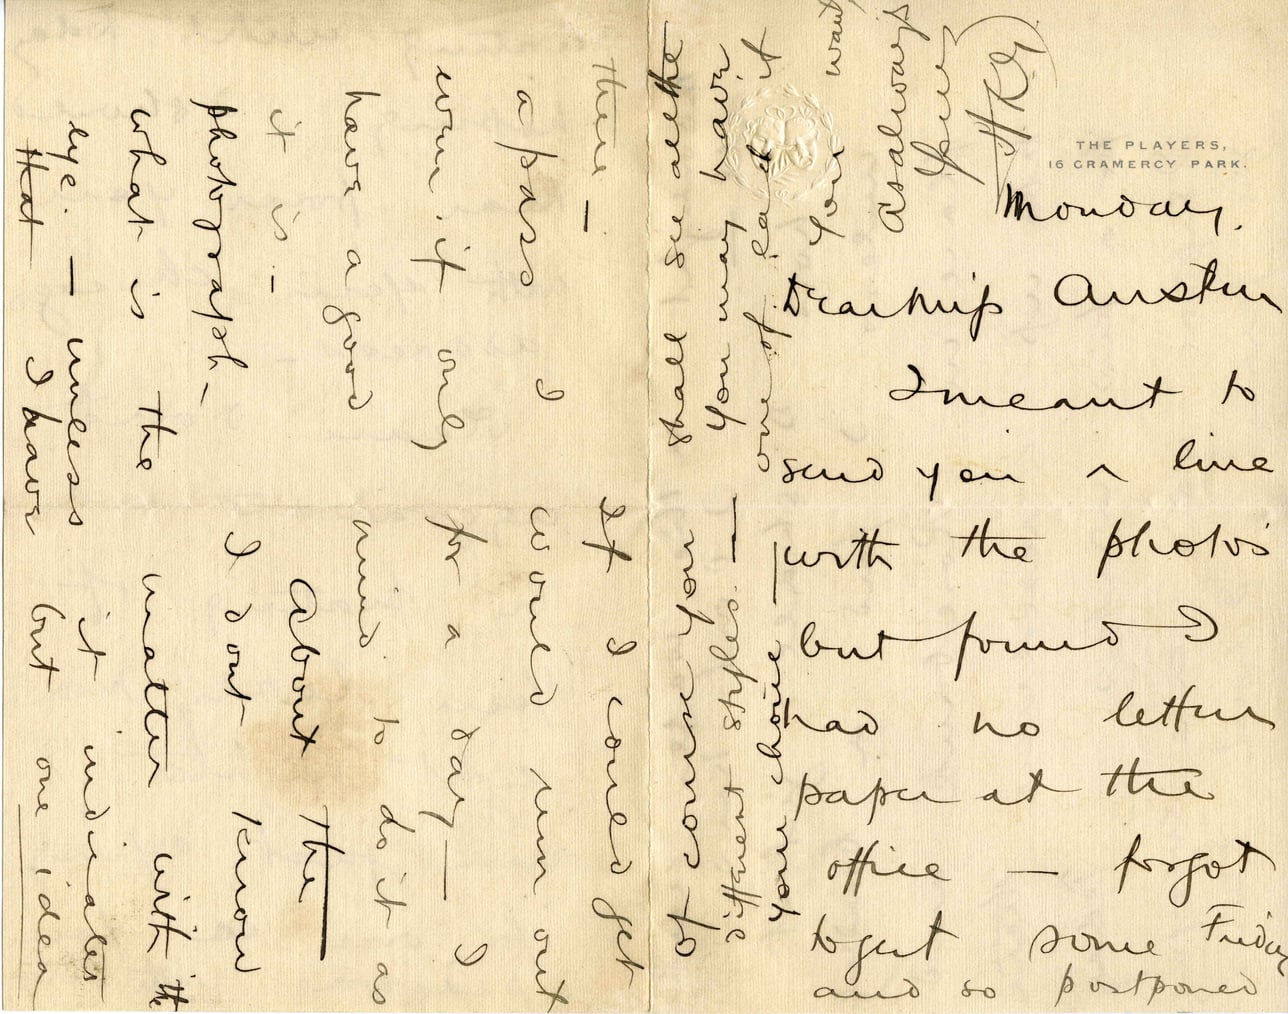 THE PLAYERS,
16 GRAMERCY PARK.
Monday.
Dear Miss Austen
I meant to
send you a line
with the photos
but found I
had no letter
paper at the
office — forgot
to get some Friday
and so postponed
there — If I could get
a pass I would run out
even if only for a day — I
have a good mind to do it as
it is. — About the
photograph — I dont know
what is the matter with the
eye. — unless it indicates
that I have but one idea
Of course you shall see all the
different styles. — You may have
your choice — one of each if
you want
As always
Yours